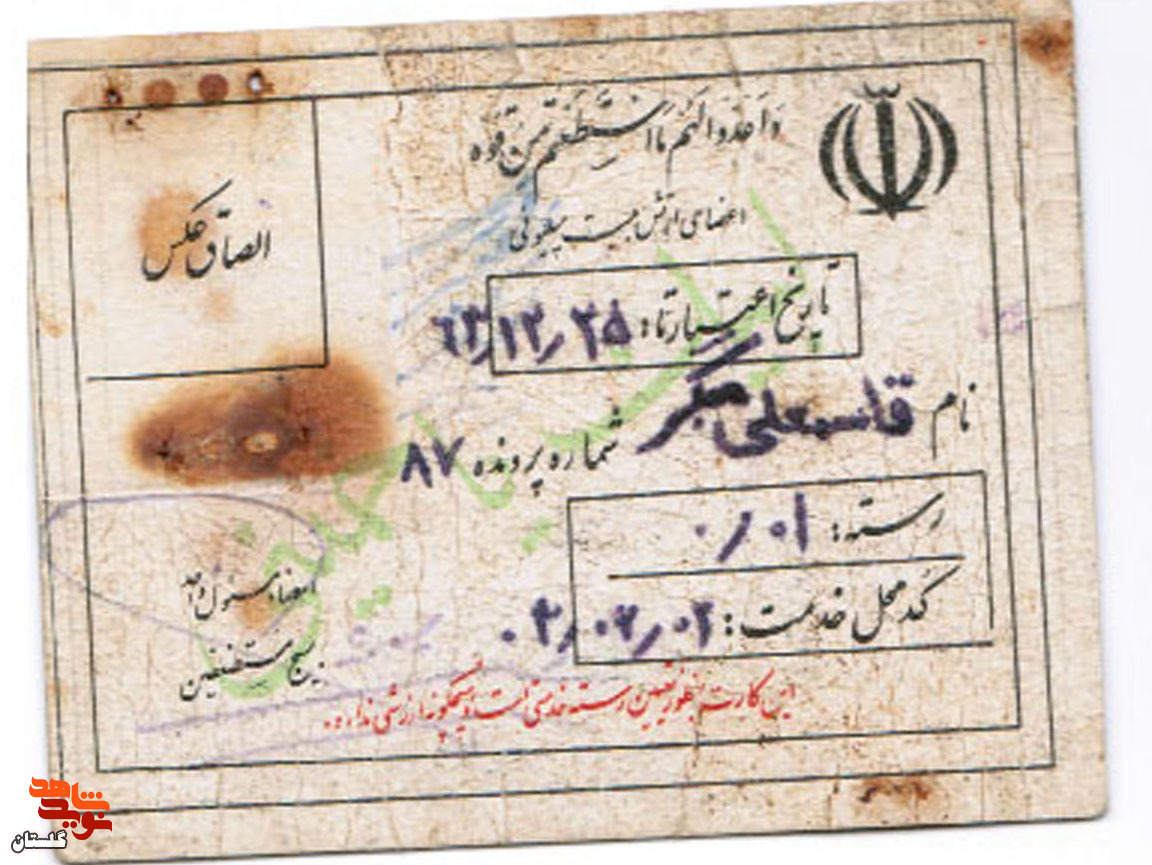 وَاَعِدّوا لَهُم مَا اسْتَطَعْتُم مِن قُوّه
اعضای ارتش بیست میلیونی
الصاق عکس
تاریخ اعتبار تا: ۶۳/۱۲/۲۵
نام قاسمعلی میگر
شماره پرونده ۸۷
رسته: ۰/۰۱
کد محل خدمت: ۰۲/۰۲/۰۲
امضاء مسئول واحد
بسیج مستضعفین
این کارت بمنظور تعیین رسته خدمتی است و هیچگونه ارزشی ندارد.
نوید شاهد
گلستان